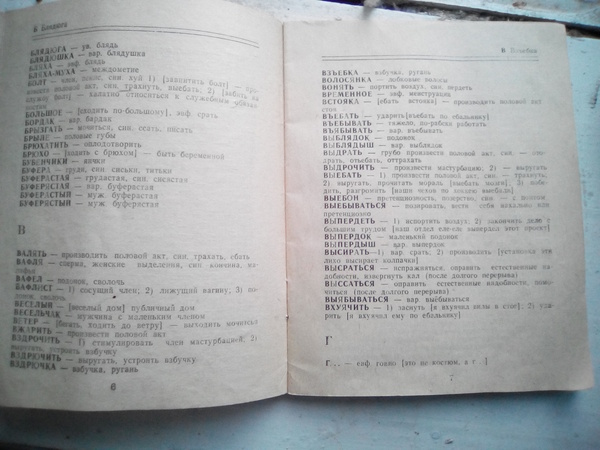 Б Блядюга
БЛЯДЮГА — ув. блядь
БЛЯДЮШКА — вар. блядушка
БЛЯХА — эвф. блядь
БЛЯХА-МУХА — междометие
БОЛТ — член, полос. син. хуй 1) [заболтить болт] — про-
половой акт, син. трахнуть, выебать, 2) [ебать на
службу болт] — халатно относиться к служебным обязан-
БОЛЬШОЕ — [сходить по-большому], эвф. срать
БОРДАК — вар. бардак
БРЫЗГАТЬ — мочиться, син. ссать, писать
БРЫЛЕ — половые губы
БРЮХАТИТЬ — оплодотворить
БРЮХО — [ходить с брюхом] — быть беременной
БУБЕНЧИКИ — яички
БУФЕРА — груди, син. сиськи, титьки
БУФЕРАСТАЯ — грудастая, син. сисястая
БУФЕРЯСТАЯ — вар. буферастая
БУФЕРАСТЫЙ — муж. буферастая
БУФЕРЯСТЫЙ — муж. буферястая
В
ВАЛЯТЬ — производить половой акт, син. трахать, ебать
ВАФЛЯ — сперма, женские выделения, син. кончина,
ВАФЕЛ — подонок, сволочь
ВАФЛИСТ — 1) сосущий член; 2) лижущий вагину; 3) по-
донок, сволочь
ВЕСЕЛЫЙ — [веселый дом] публичный дом
ВЕСЕЛЬЧАК — мужчина с маленьким членом
ВЕТЕР — [бегать, ходить до ветру] — выходить мочиться
ВЖАРИТЬ — произвести половой акт
ВЗДРОЧИТЬ — 1) стимулировать член мастурбацией; 2)
выругать, устроить взбучку
ВЗДРЮЧИТЬ — выругать, устроить взбучку
ВЗДРЮЧКА — взбучка, ругань
6
В
ВЗЪЕБКА — взбучка, ругань
ВОЛОСЯНКА — лобковые волосы
ВОНЯТЬ — портить воздух, син. пердеть
ВРЕМЕННОЕ — эвф. менструация
ВСТОЯКА — [ебать встояка] — производить половой акт
стоя
ВЪЕБАТЬ — ударить [въебать по ебальнику]
ВЪЕБЫВАТЬ — тяжело, по-рабски работать
ВЪЯБЫВАТЬ — вар. въебывать
ВЫБЛЯДОК — подонок
ВЫБЛЯДЫШ — вар. выблядок
ВЫДРАТЬ — грубо произвести половой акт, син. —
драть, отъебать, оттрахать
ВЫДРОЧИТЬ — произвести мастурбацию; 2) выругать
ВЫЕБАТЬ — 1) произвести половой акт, син. трахнуть;
2) выругать, прочитать мораль [выебать мозги]; 3) побе-
дить, разгромить [наши чехов по хоккею выебали]
ВЫЕБОН — претенциозность, позерство, син. — с понтом
ВЫЕБЫВАТЬСЯ — позировать, вести себя нахально или
претенциозно
ВЫПЕРДЕТЬ — 1) испортить воздух, 2) закончить дело с
большим трудом [наш отдел еле-еле выпердел этот проект]
ВЫПЕРДОК — маленький подонок
ВЫПЕРДЫШ — вар. выпердок
ВЫСИРАТЬ — 1) вар. срать; 2) производить [установка эта
лихо высирает колпачки]
ВЫСРАТЬСЯ — испражниться, оправить естественные на-
добности, извергнуть кал (после долгого перерыва)
ВЫССАТЬСЯ — оправить естественные надобности, помо-
читься (после долгого перерыва)
ВЫЯБЫВАТЬСЯ — вар. выебываться
ВХУЯЧИТЬ — 1) загнуть [я вхуячил вилы в стог]; 2) уда-
рить [я вхуячил ему по ебальнику]
Г
Г... — эвф. говно [это не костюм, а г...]